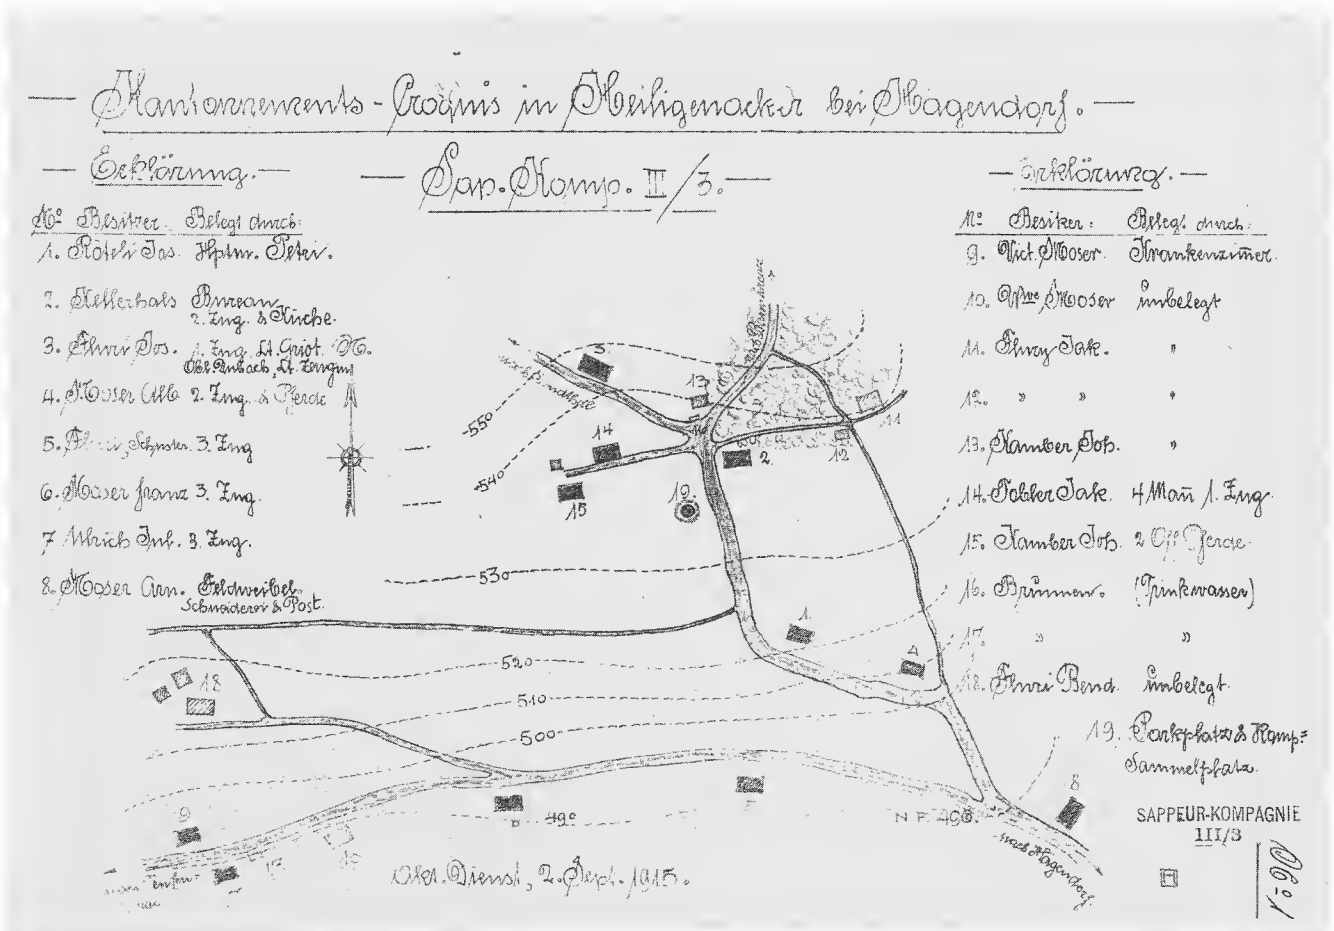 Kantonnements-Croquis in Heiligenacker bei Hägendorf.
Sap. Komp. III/3.
Erklärung.
No Besitzer. Belegt durch:
1. Röteli Jos. Hptm. Petri.
2. Kellerhals Bureau
2. Zug. & Küche.
3. Flury Jos. 1. Zug. Lt. Griot.
Lt. Zeugin
4. Moser Alb. 2. Zug. & Pferde
5. Schuster. 3. Zug
6. Moser Franz 3. Zug.
7 Ulrich Jul. 3. Zug.
8. Moser Arn. Feldweibel.
Schneiderei & Post.
Erklärung.
No Besitzer: Belegt durch:
9. Vict. Moser. Krankenzimmer.
10. Wwe Moser unbelegt
11. Flury Jak. "
12. " " "
13. Kamber Joh. "
14. Tobler Jak. 4 Mann 1. Zug.
15. Kamber Joh. 2 Off Pferde.
16. Brunnen. (Trinkwasser)
17. " "
18. Fluri Bend. unbelegt.
19. Parkplatz & Komp=
Sammelplatz.
3
13
550
14
11
540
2.
12
15
19.
530
1.
4
520
18
510
500
9
8
490
N P. 496.
17
10
nach Hägendorf.
Akt. Dienst, 2. Sept. 1915.
SAPPEUR-KOMPAGNIE
III/3